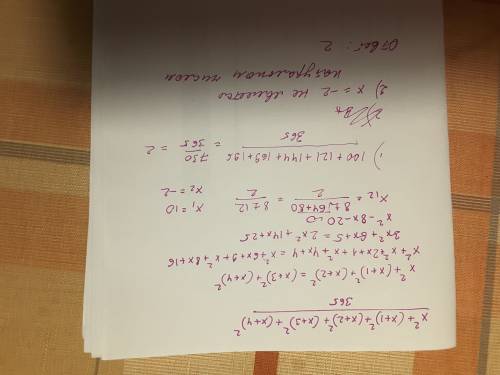 x² + (x+1)² + (x+2)² + (x+3)² + (x+4)²
365
x² + (x+1)² + (x+2)² = (x+3)² + (x+4)²
x² + x² + 2x + 1 + x² + 4x + 4 = x² + 6x + 9 + x² + 8x + 16
3x² + 6x + 5 = 2x² + 14x + 25
x² - 8x - 20 = 0
x₁₂ = (8 ± √64+80)/2 = (8 ± 12)/2 x₁ = 10 x₂ = -2
1) (100 + 121 + 144 + 169 + 196)/365 = 730/365 = 2
2) x = -2 не является
натуральным числом
Ответ: 2